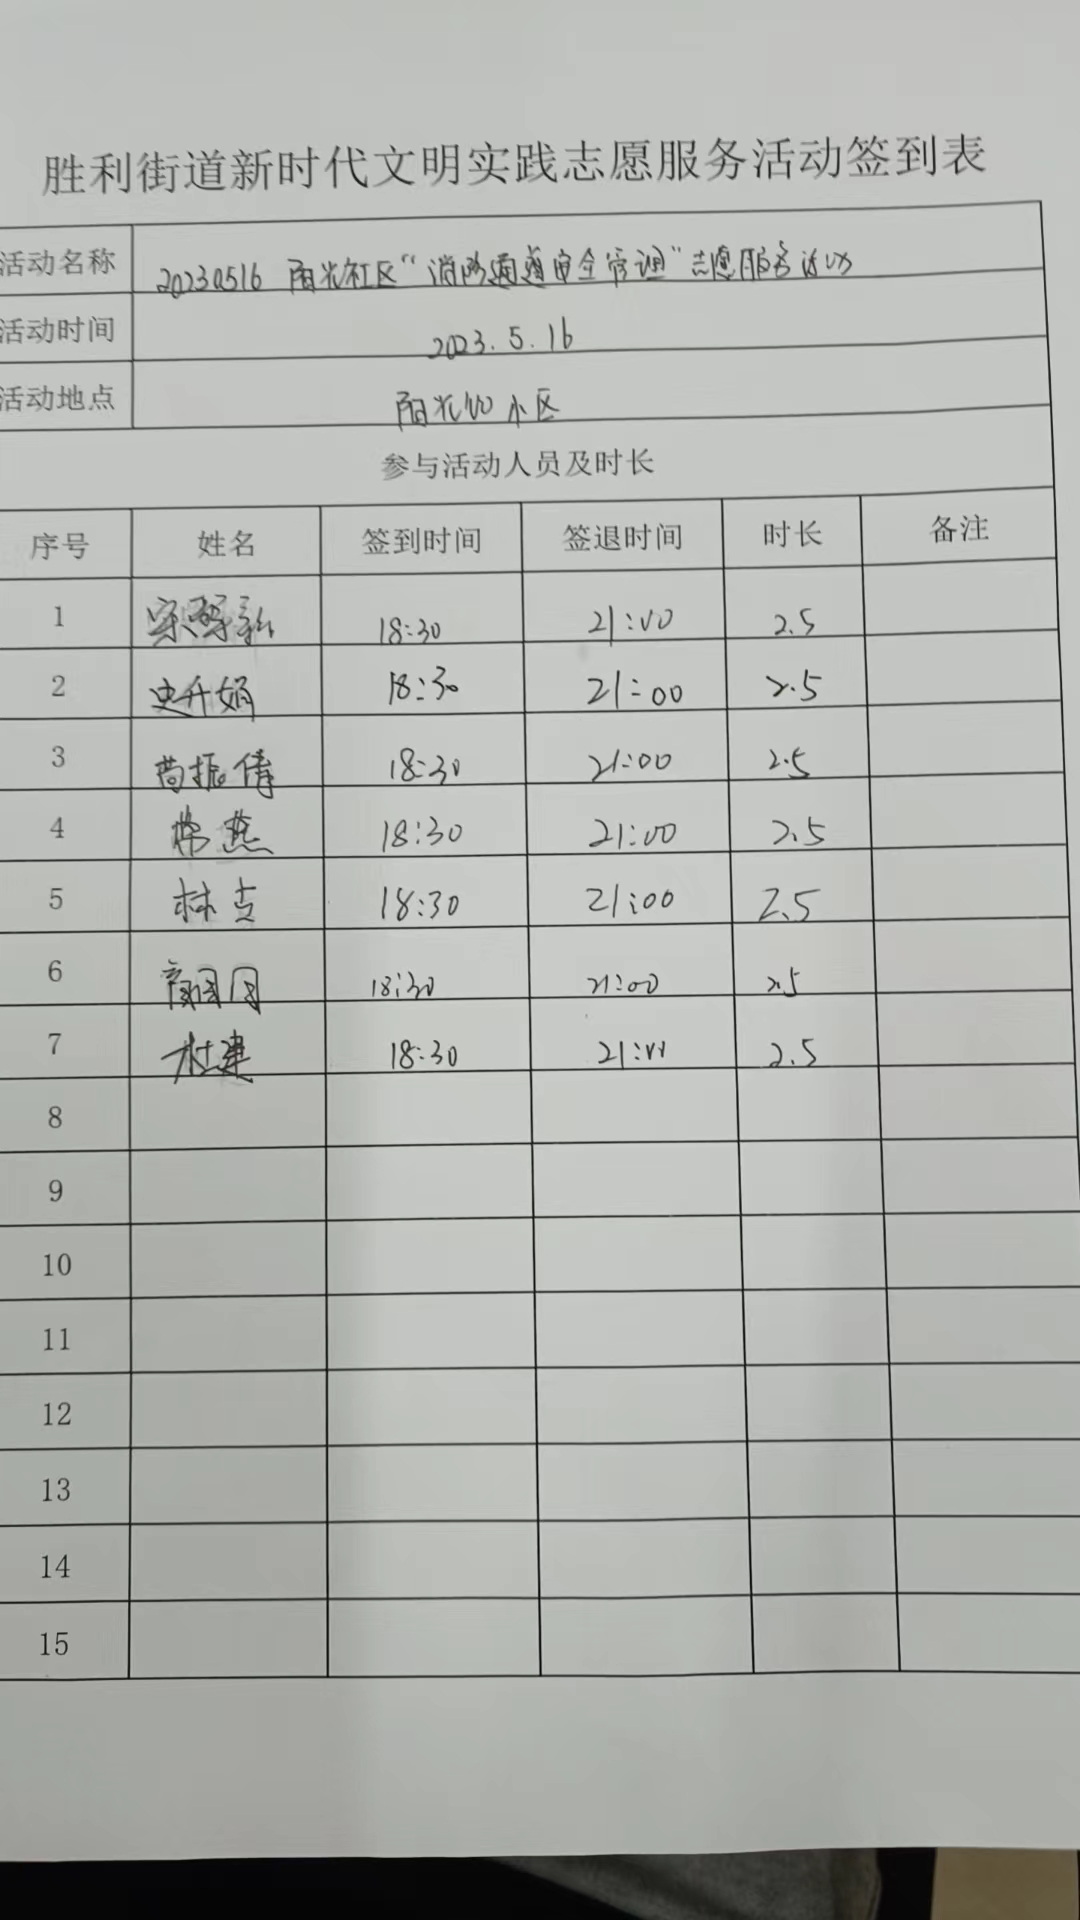 胜利街道新时代文明实践志愿服务活动签到表
活动名称 20230516 阳光社区“消防通道安全管理”志愿服务活动
活动时间 2023.5.16
活动地点 阳光100小区
参与活动人员及时长
序号 姓名 签到时间 签退时间 时长 备注
1 宋 18:30 21:00 2.5
2 史升娟 18:30 21:00 2.5
3 苘振倩 18:30 21:00 2.5
4 燕 18:30 21:00 2.5
5 林吉 18:30 21:00 2.5
6 18:30 21:00 2.5
7 杜建 18:30 21:00 2.5
8
9
10
11
12
13
14
15